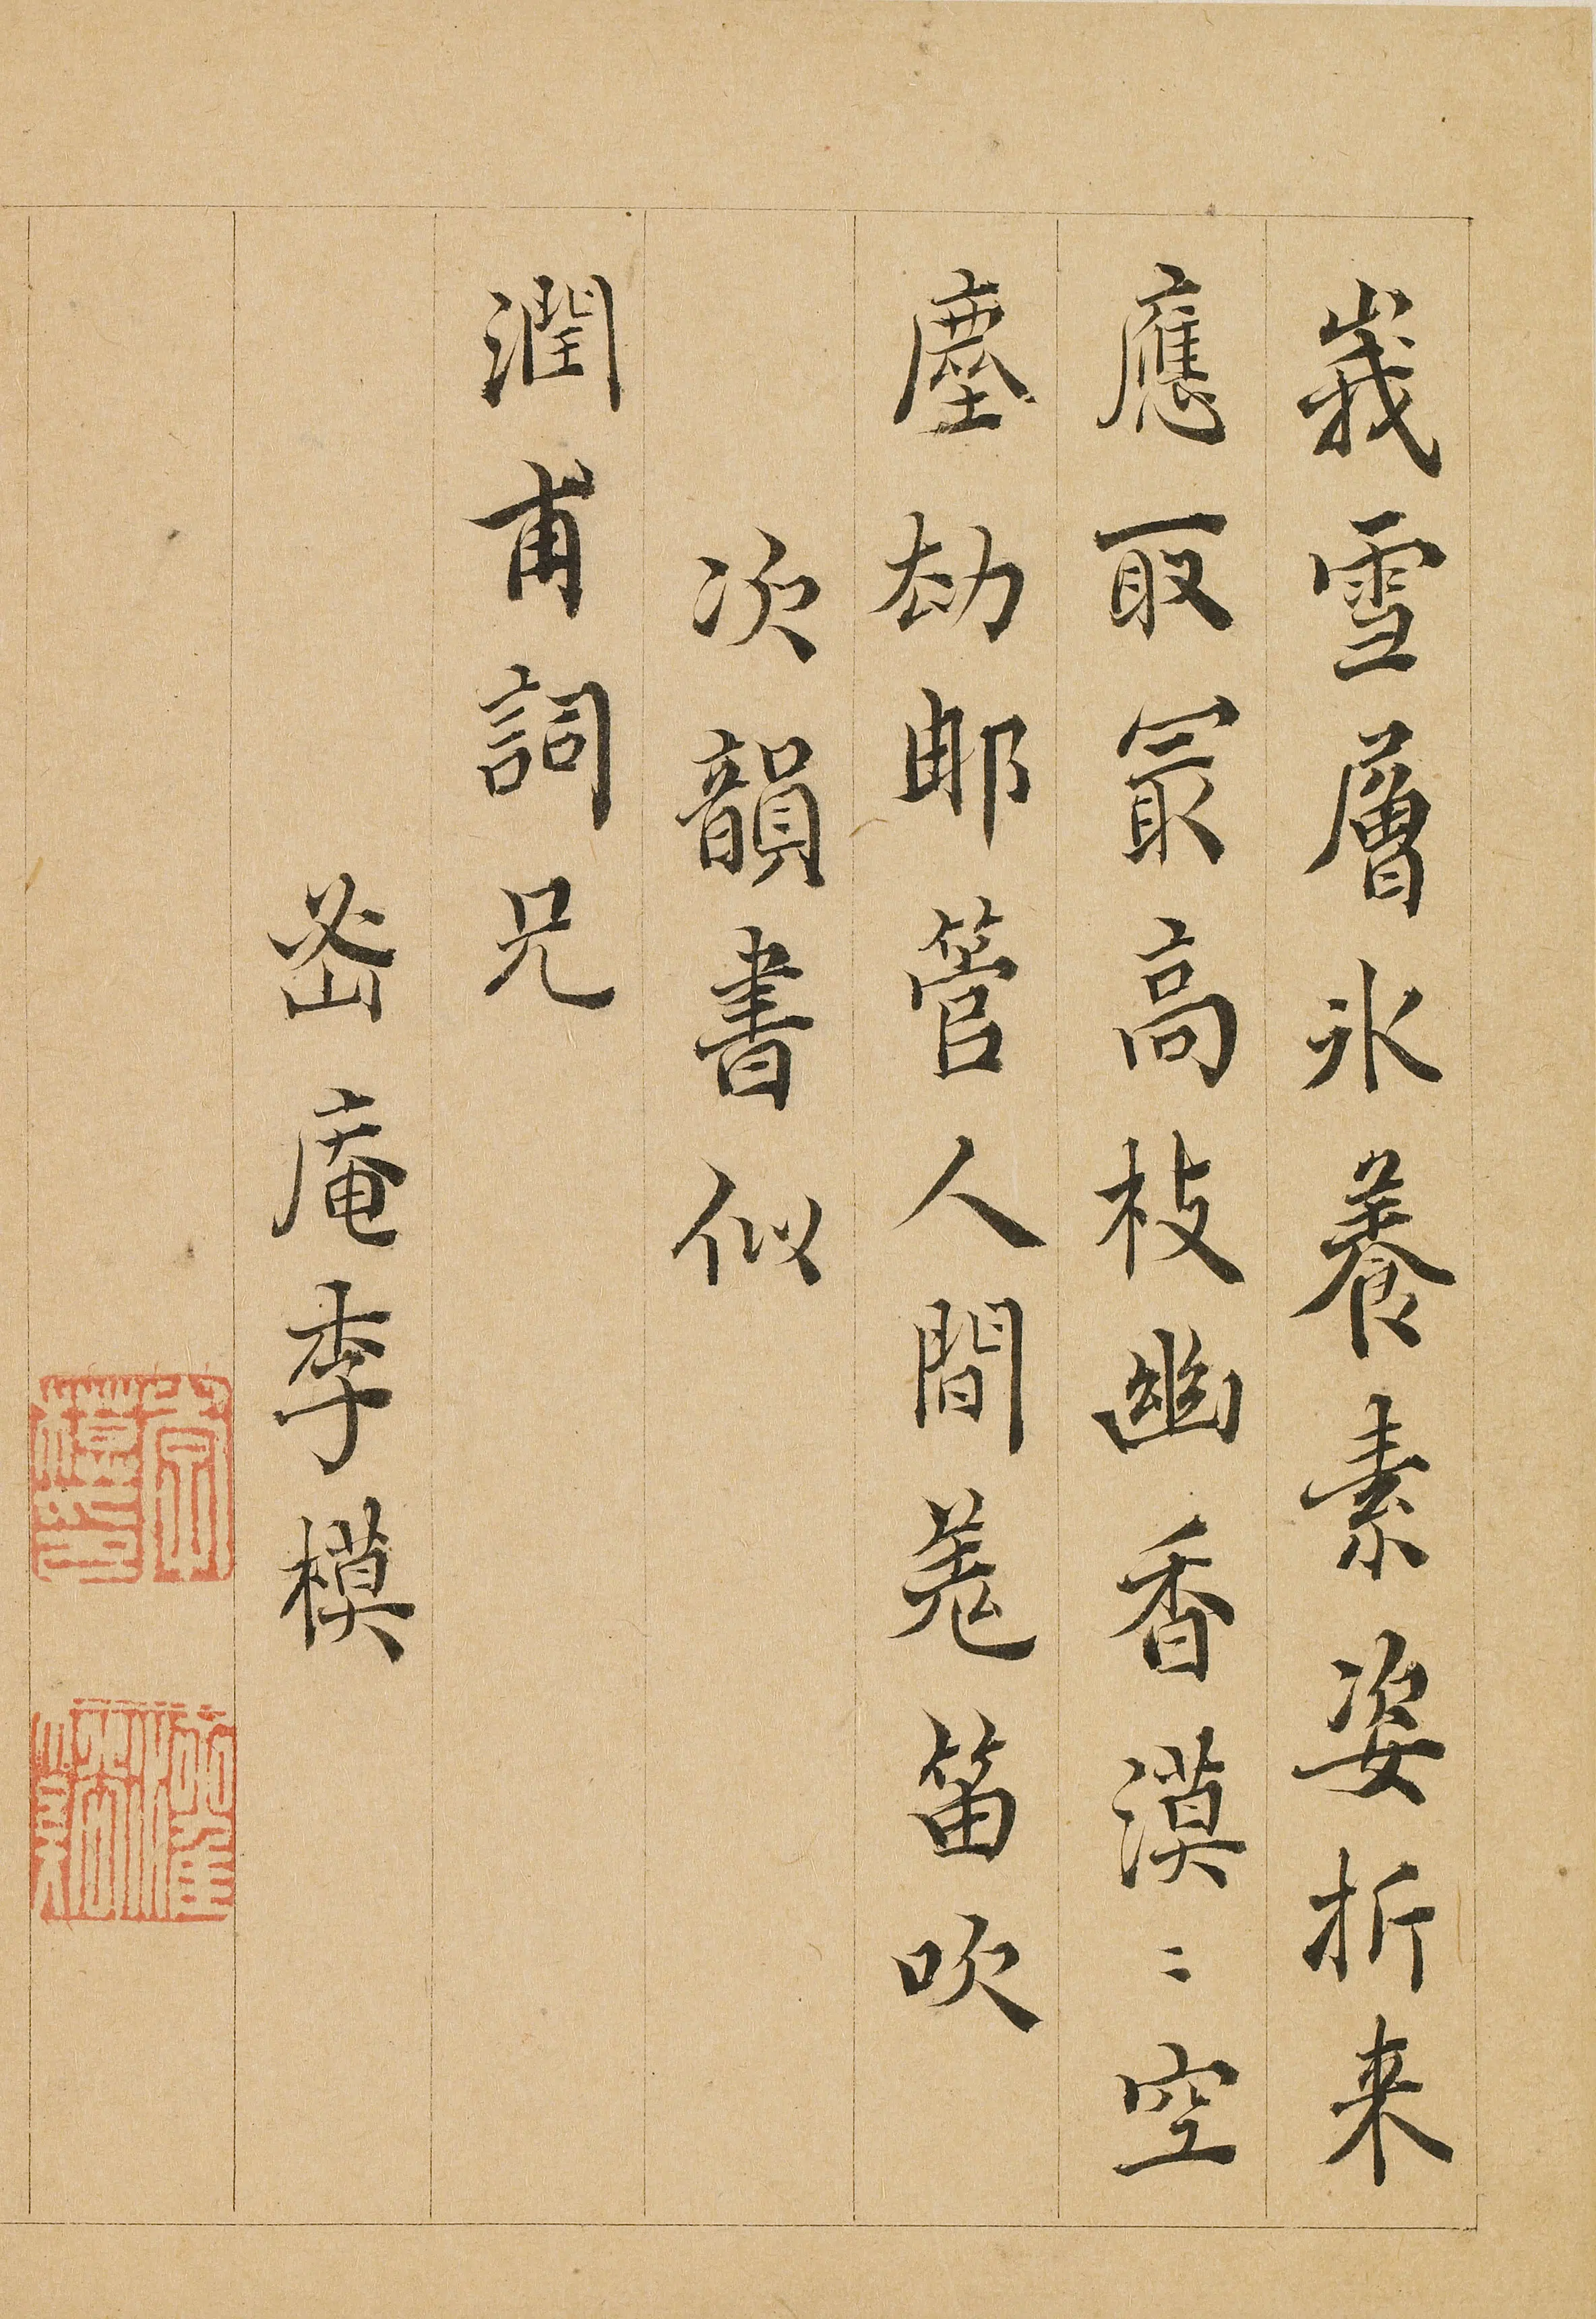 峩雪層氷養素姿折来
應取冣高枝幽香漠〻空
塵劫那管人間羗笛吹
次韻書似
潤甫詞兄
密庵李模